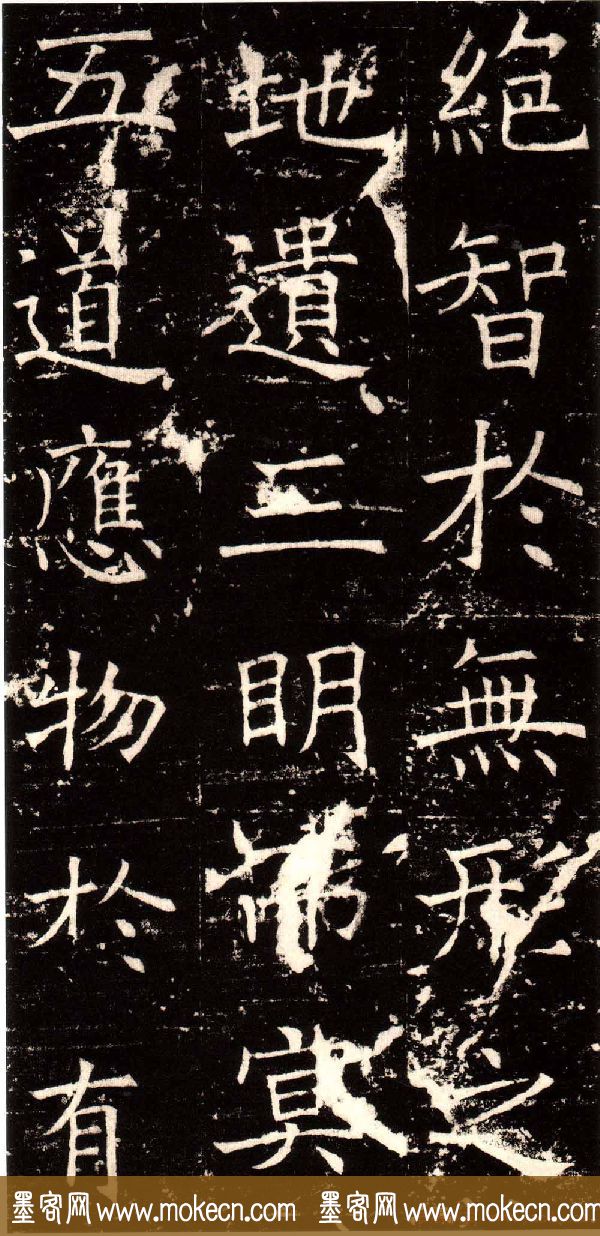 絶智於無形之
地遺三眀冥
五道應物於有
墨客网 www.mokecn.com 墨客网 www.mokecn.com